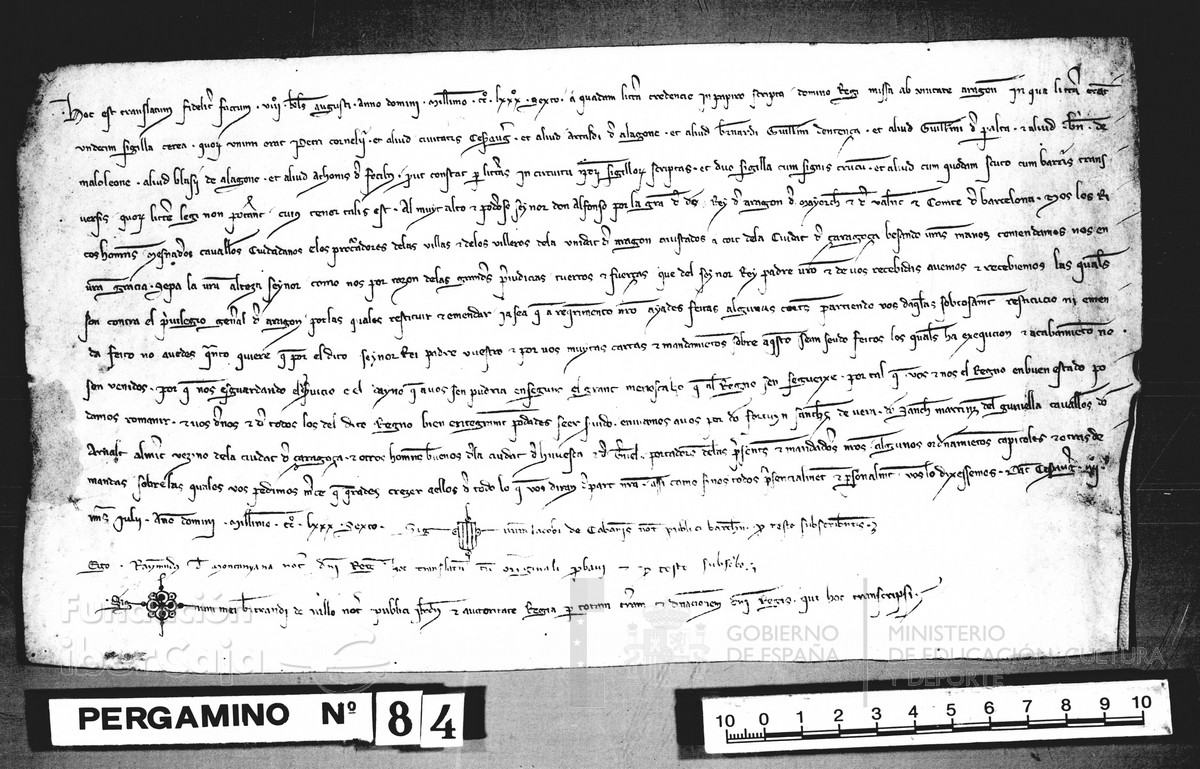 Hoc est translatum fidelit' factum . viij . kls augusti . anno domini . Millimo . cc . lxxx . Sexto . a quadam litt'a credencie in papiro scripta domino Regi missa ab unitate aragon in qua litt'a erat
undecim sigilla cerea . quor' unum erat Petri cornelij . et aliud civitatis Cesaraug . et aliud Artaldi d' alagone . et aliud b'nardi Guill'mi dentença . et aliud Guill'mi d' peralta . aliud de
maloleone . aliud blasij de alagone . et aliud . put constat p litt'as in circuitu sigillor' scriptas . et duo sigilla cum signis crucis . et aliud cum quodam scuto cum barris trans
versis . quor' litt'e legi non poterant . cuius tenor talis est . Al muyt alto e poderoso senyor don Alfonso por la gra d' ds . Rey d' aragon d' mayorch' et d' valenc' et Comte d' barcelona . Nos los Ri
cos homns mesnaders cavalleros Ciudadanos e los procuradores delas villas e delos villeros dela unidat d' aragon aiustados a cort dela Ciudat d' çaragoça besando vras manos comendamos nos en
vra gracia . Sepa la vra alteza senyor como nos por razon delas grandes periudicas tuertos e fuerças que del senyor Rey padre vro e de vos recebidas avemos e recebiemos las quals
son contra el privilegio gen'al d' aragon por las quales restituir e emendar iasea q a reqrimento nro ayades feitas algunas cortz partiendo vos restitucio ni emen
da feito no avedes q'nto quiere q por el dito senyor Rei padre vuestro e por vos muytas cartas e mandamientos sobre aqsto sean seido feitos los quals ha exequcion e acabamiento no
son venidos . por q nos esguardando el e el danyo q avos sen pudria enseguir el grant menoscabo q al Regno sen seguexe . por tal q vos e nos el Regno en buen estado po
damos romanir . e vos e d' todos los del dito Regno bien entegrament podades seer s'vido . enviamos avos por don fortun sanch's de vera . do Sanch martin's del cavallos do
Arnalt vezino dela ciudat d' çaragoça . e otros hommes buenos dela ciudat d' huesca e d' t'uel . portadores delas present's e mandaders nros . algunos ordnamientos capitoles e otras de
mandas sobre las quales vos pedimos m'ce q q'rades creyer aellos d' todo lo q vos diran d' part nra . assi como si nos todos p'sencialment e p'sonalment vos lo dixessemos . Dat Cesaraug'
Julij . Ano domini . Millimo . cc . lxxx . Sexto . Sig num Jacobi de Cabanis not' publici barchn . p teste subscribentis
Ego . Raymundus d' Montanyana not' dni Reg' hoc translatu cu originali pbavi e p teste subscbo .
Sig num mei b'trandi de vallo not' publici et auctoritate Regia p totam t'ram et dnacionem dni Regis . qui hoc transcripsi .
Fundación
iberCaja
GOBIERNO DE ESPAÑA
MINISTERIO DE EDUCACIÓN, CULTURA Y DEPORTE
PERGAMINO Nº 84
10 0 1 2 3 4 5 6 7 8 9 10